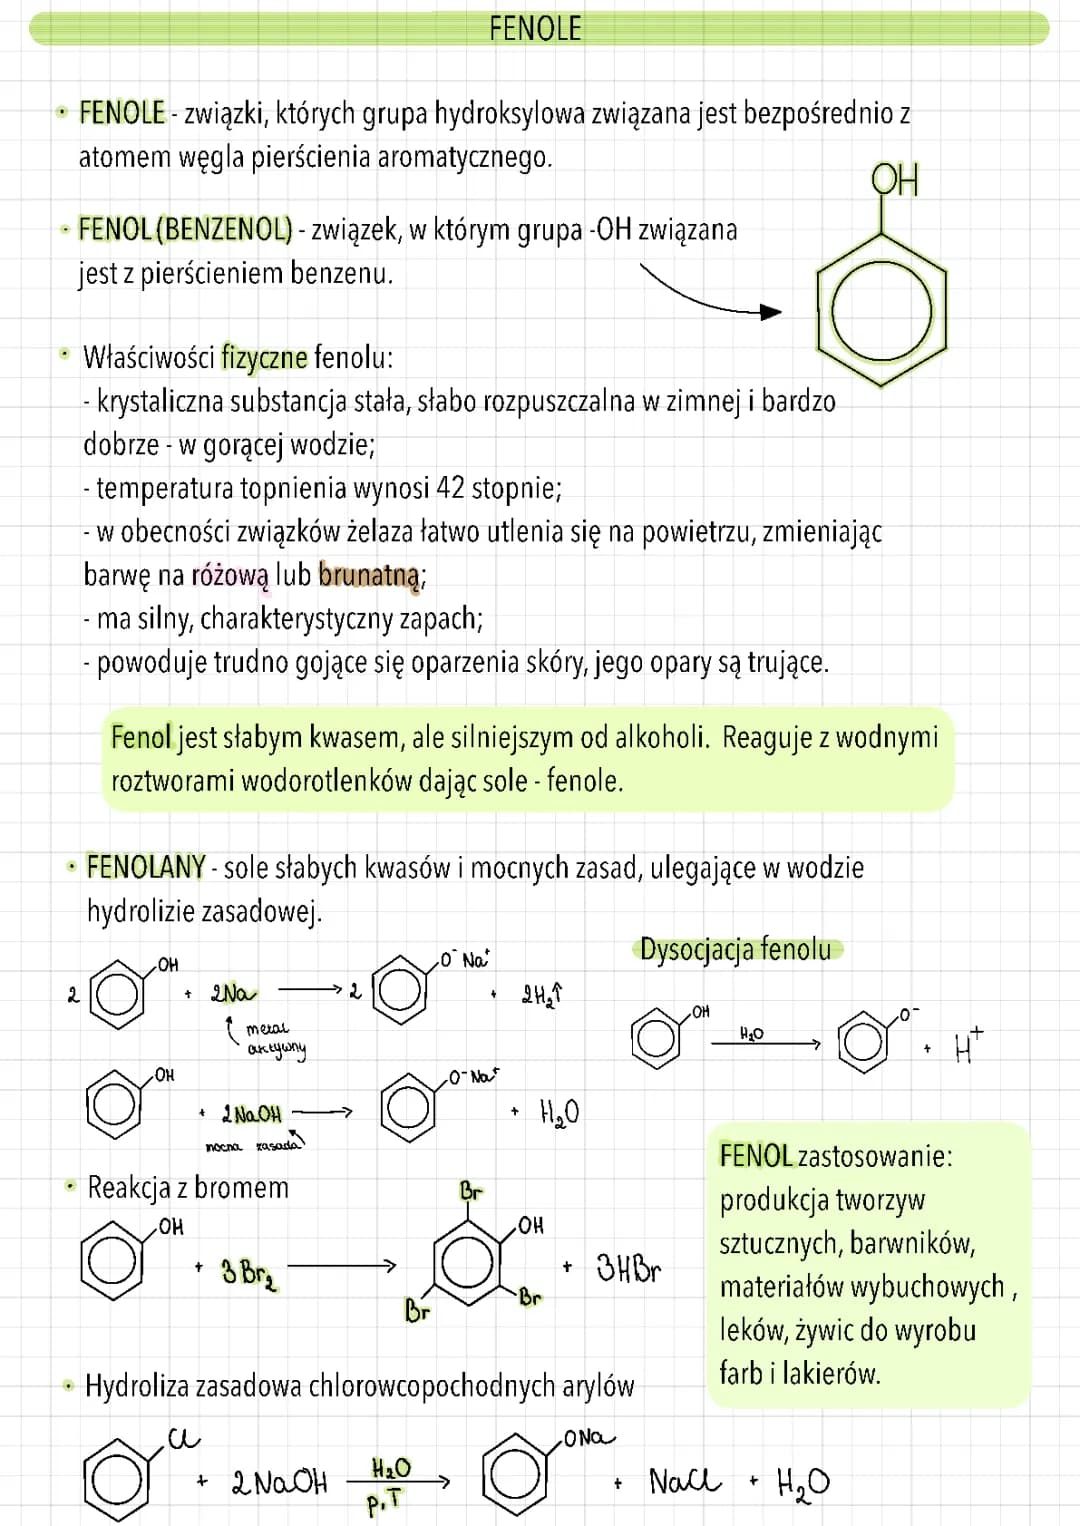 FENOLE
• FENOLE - związki, których grupa hydroksylowa związana jest bezpośrednio z
atomem węgla pierścienia aromatycznego.
OH
• FENOL (BENZENOL) - związek, w którym grupa -OH związana
jest z pierścieniem benzenu.
• Właściwości fizyczne fenolu:
- krystaliczna substancja stała, słabo rozpuszczalna w zimnej i bardzo
dobrze - w gorącej wodzie;
- temperatura topnienia wynosi 42 stopnie;
- w obecności związków żelaza łatwo utlenia się na powietrzu, zmieniając
barwę na różową lub brunatną;
- ma silny, charakterystyczny zapach;
- powoduje trudno gojące się oparzenia skóry, jego opary są trujące.
Fenol jest słabym kwasem, ale silniejszym od alkoholi. Reaguje z wodnymi
roztworami wodorotlenków dając sole - fenole.
• FENOLANY - sole słabych kwasów i mocnych zasad, ulegające w wodzie
hydrolizie zasadowej.
2 OH + 2Na → 2 O⁻ Na⁺ + 2H₂↑
metal
aktywny
Dysocjacja fenolu
OH H₂O → O⁻ + H⁺
OH + 2NaOH → O⁻Na⁺ + H₂O
mocna zasada
• Reakcja z bromem
OH + 3Br₂ → Br OH Br Br + 3HBr
FENOL zastosowanie:
produkcja tworzyw
sztucznych, barwników,
materiałów wybuchowych ,
leków, żywic do wyrobu
farb i lakierów.
• Hydroliza zasadowa chlorowcopochodnych arylów
Cl + 2NaOH H₂O → p,T ONa + NaCl + H₂O